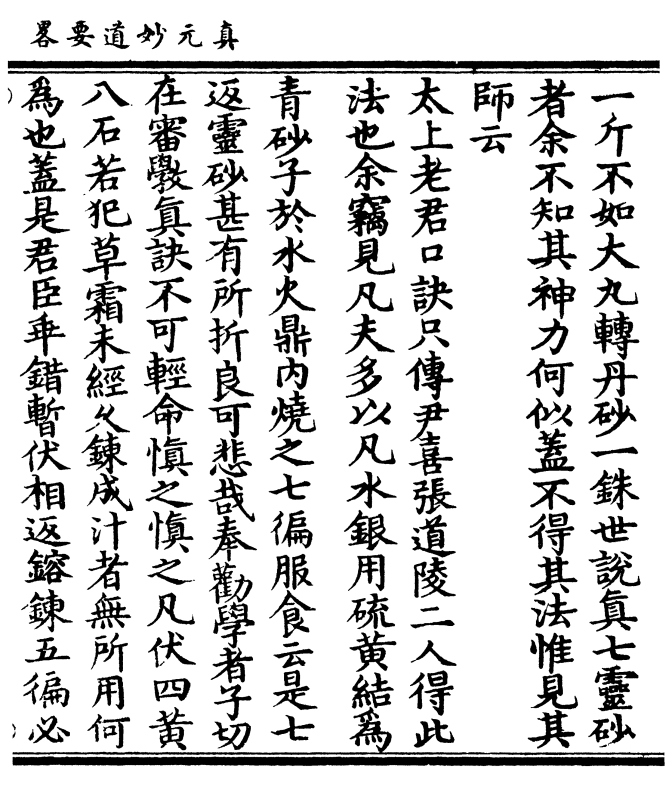 真元妙道要畧
一斤不如大丸轉丹砂一銖世說眞七靈砂
者余不知其神力何似蓋不得其法惟見其
師云
太上老君口訣只傳尹喜張道陵二人得此
法也余竊見凡夫多以凡水銀用硫黄結爲
青砂子於水火鼎內燒之七徧服食云是七
返靈砂甚有所折良可悲哉奉勸學者子切
在審斆眞訣不可輕命愼之愼之凡伏四黄
八石若犯草霜未經久鍊成汁者無所用何
爲也蓋是君臣乖錯暫伏相返鎔鍊五徧必